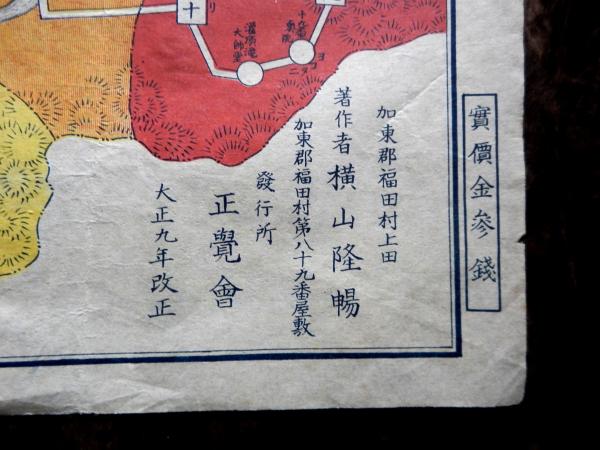 實價金參錢
加東郡福田村上田
著作者 橫山隆暢
加東郡福田村第八十九番屋敷
發行所
正覺會
大正九年改正
十
リ
大師堂